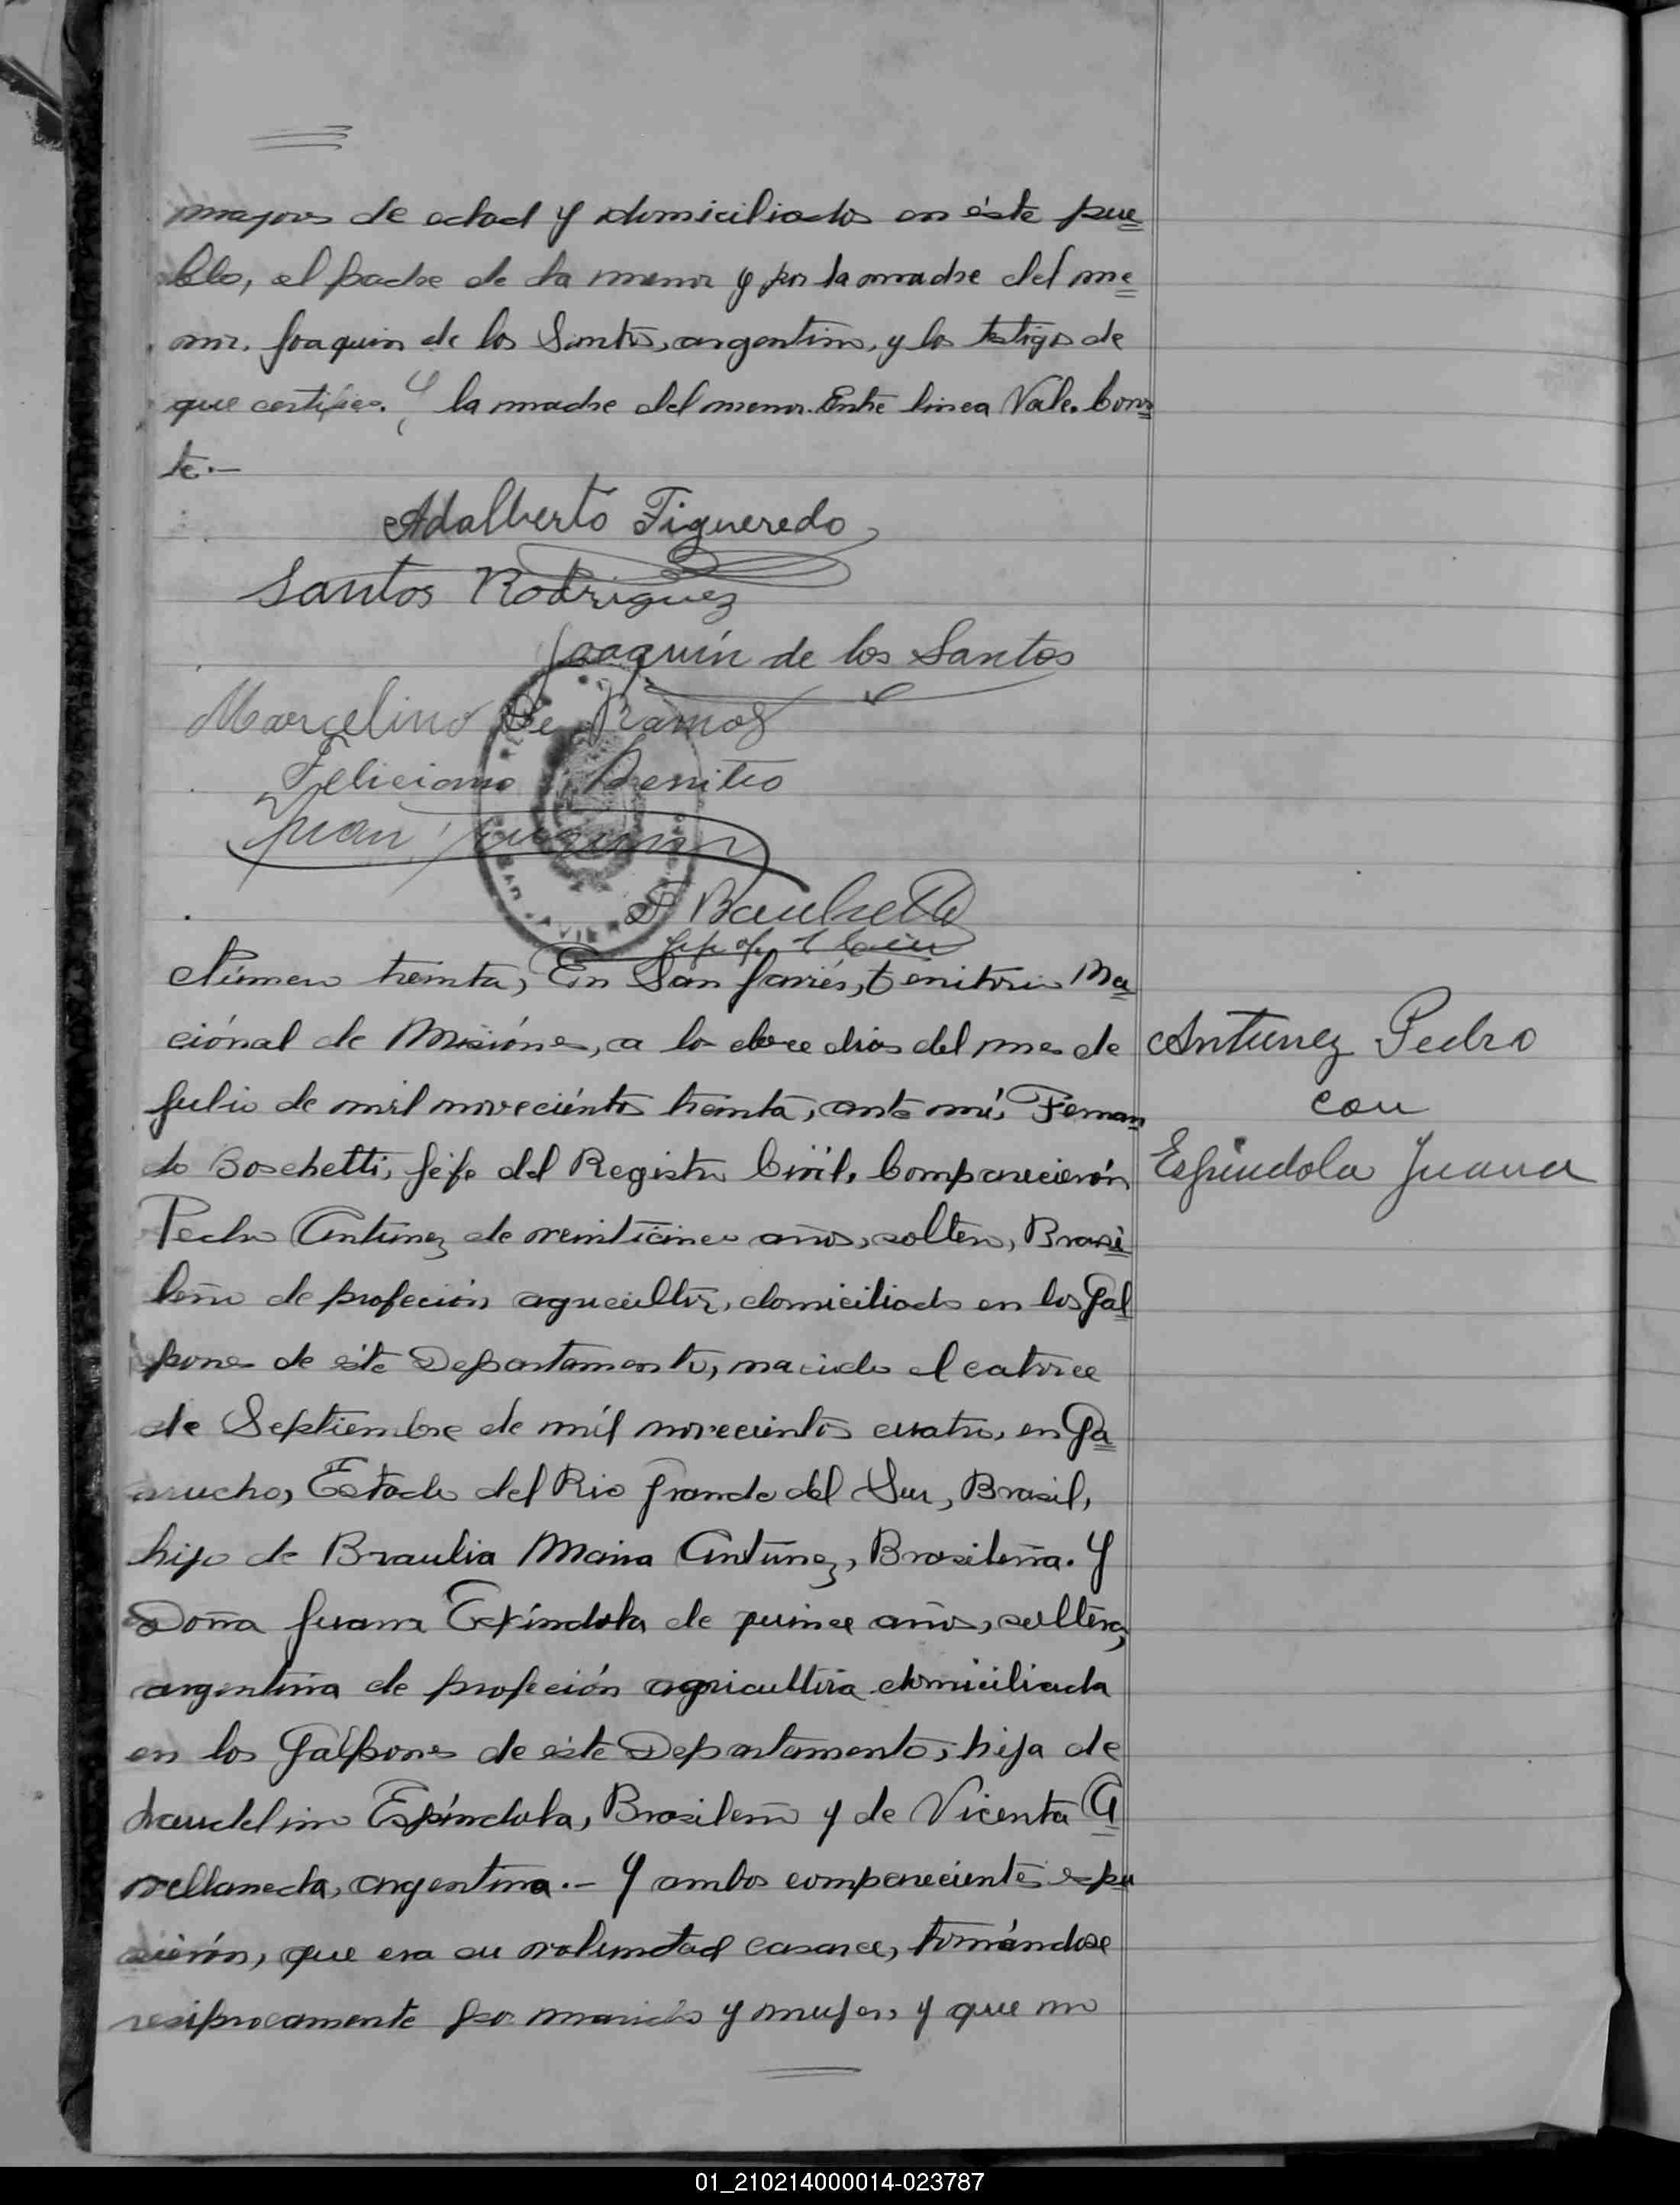 mayores de edad y domiciliados en éste pue
blo, el padre de la menor y por la madre del me
nor. Joaquin de los Santos, argentino, y los testigos de
que certifico. Y la madre del menor. Entre linea Vale. Cons
te.—
Adalberto Figueredo
Santos Rodriguez
Joaquín de los Santos
Marcelino De Ramos
Feliciano Benitto
Juan
Número treinta, En San Javiér, territorio Na
ciónal de Misiónes, a los doce dias del mes de
Julio de mil noveciéntos treinta, ante mí, Fernan
do Boschetti, Jéfe del Registro Civíl, Comparecierón
Pedro Antunez de veinticinco años, soltero, Brasi
leño de profeción agricultor, domiciliado en los Gal
pones de éste Departamento, nacido el catorce
de Septiembre de míl novecientos cuatro, en Ga
rrucho, Estado del Rio Grande del Sur, Brasil,
hijo de Braulia Maria Antunez, Brasileña. Y
Doña Juana Espíndola de quince años, soltera,
argentina de profeción agricultora domiciliada
en los Galpones de éste Departamento, hija de
Laudelino Espíndola, Brasileño y de Vicenta A
vellaneda, argentina.— Y ambos comparecientes expu
sierón, que era su voluntad casarce, tomándose
resiprocamente por marido y mujer, y que no
Antunez Pedro
con
Espindola Juana
01_210214000014-023787